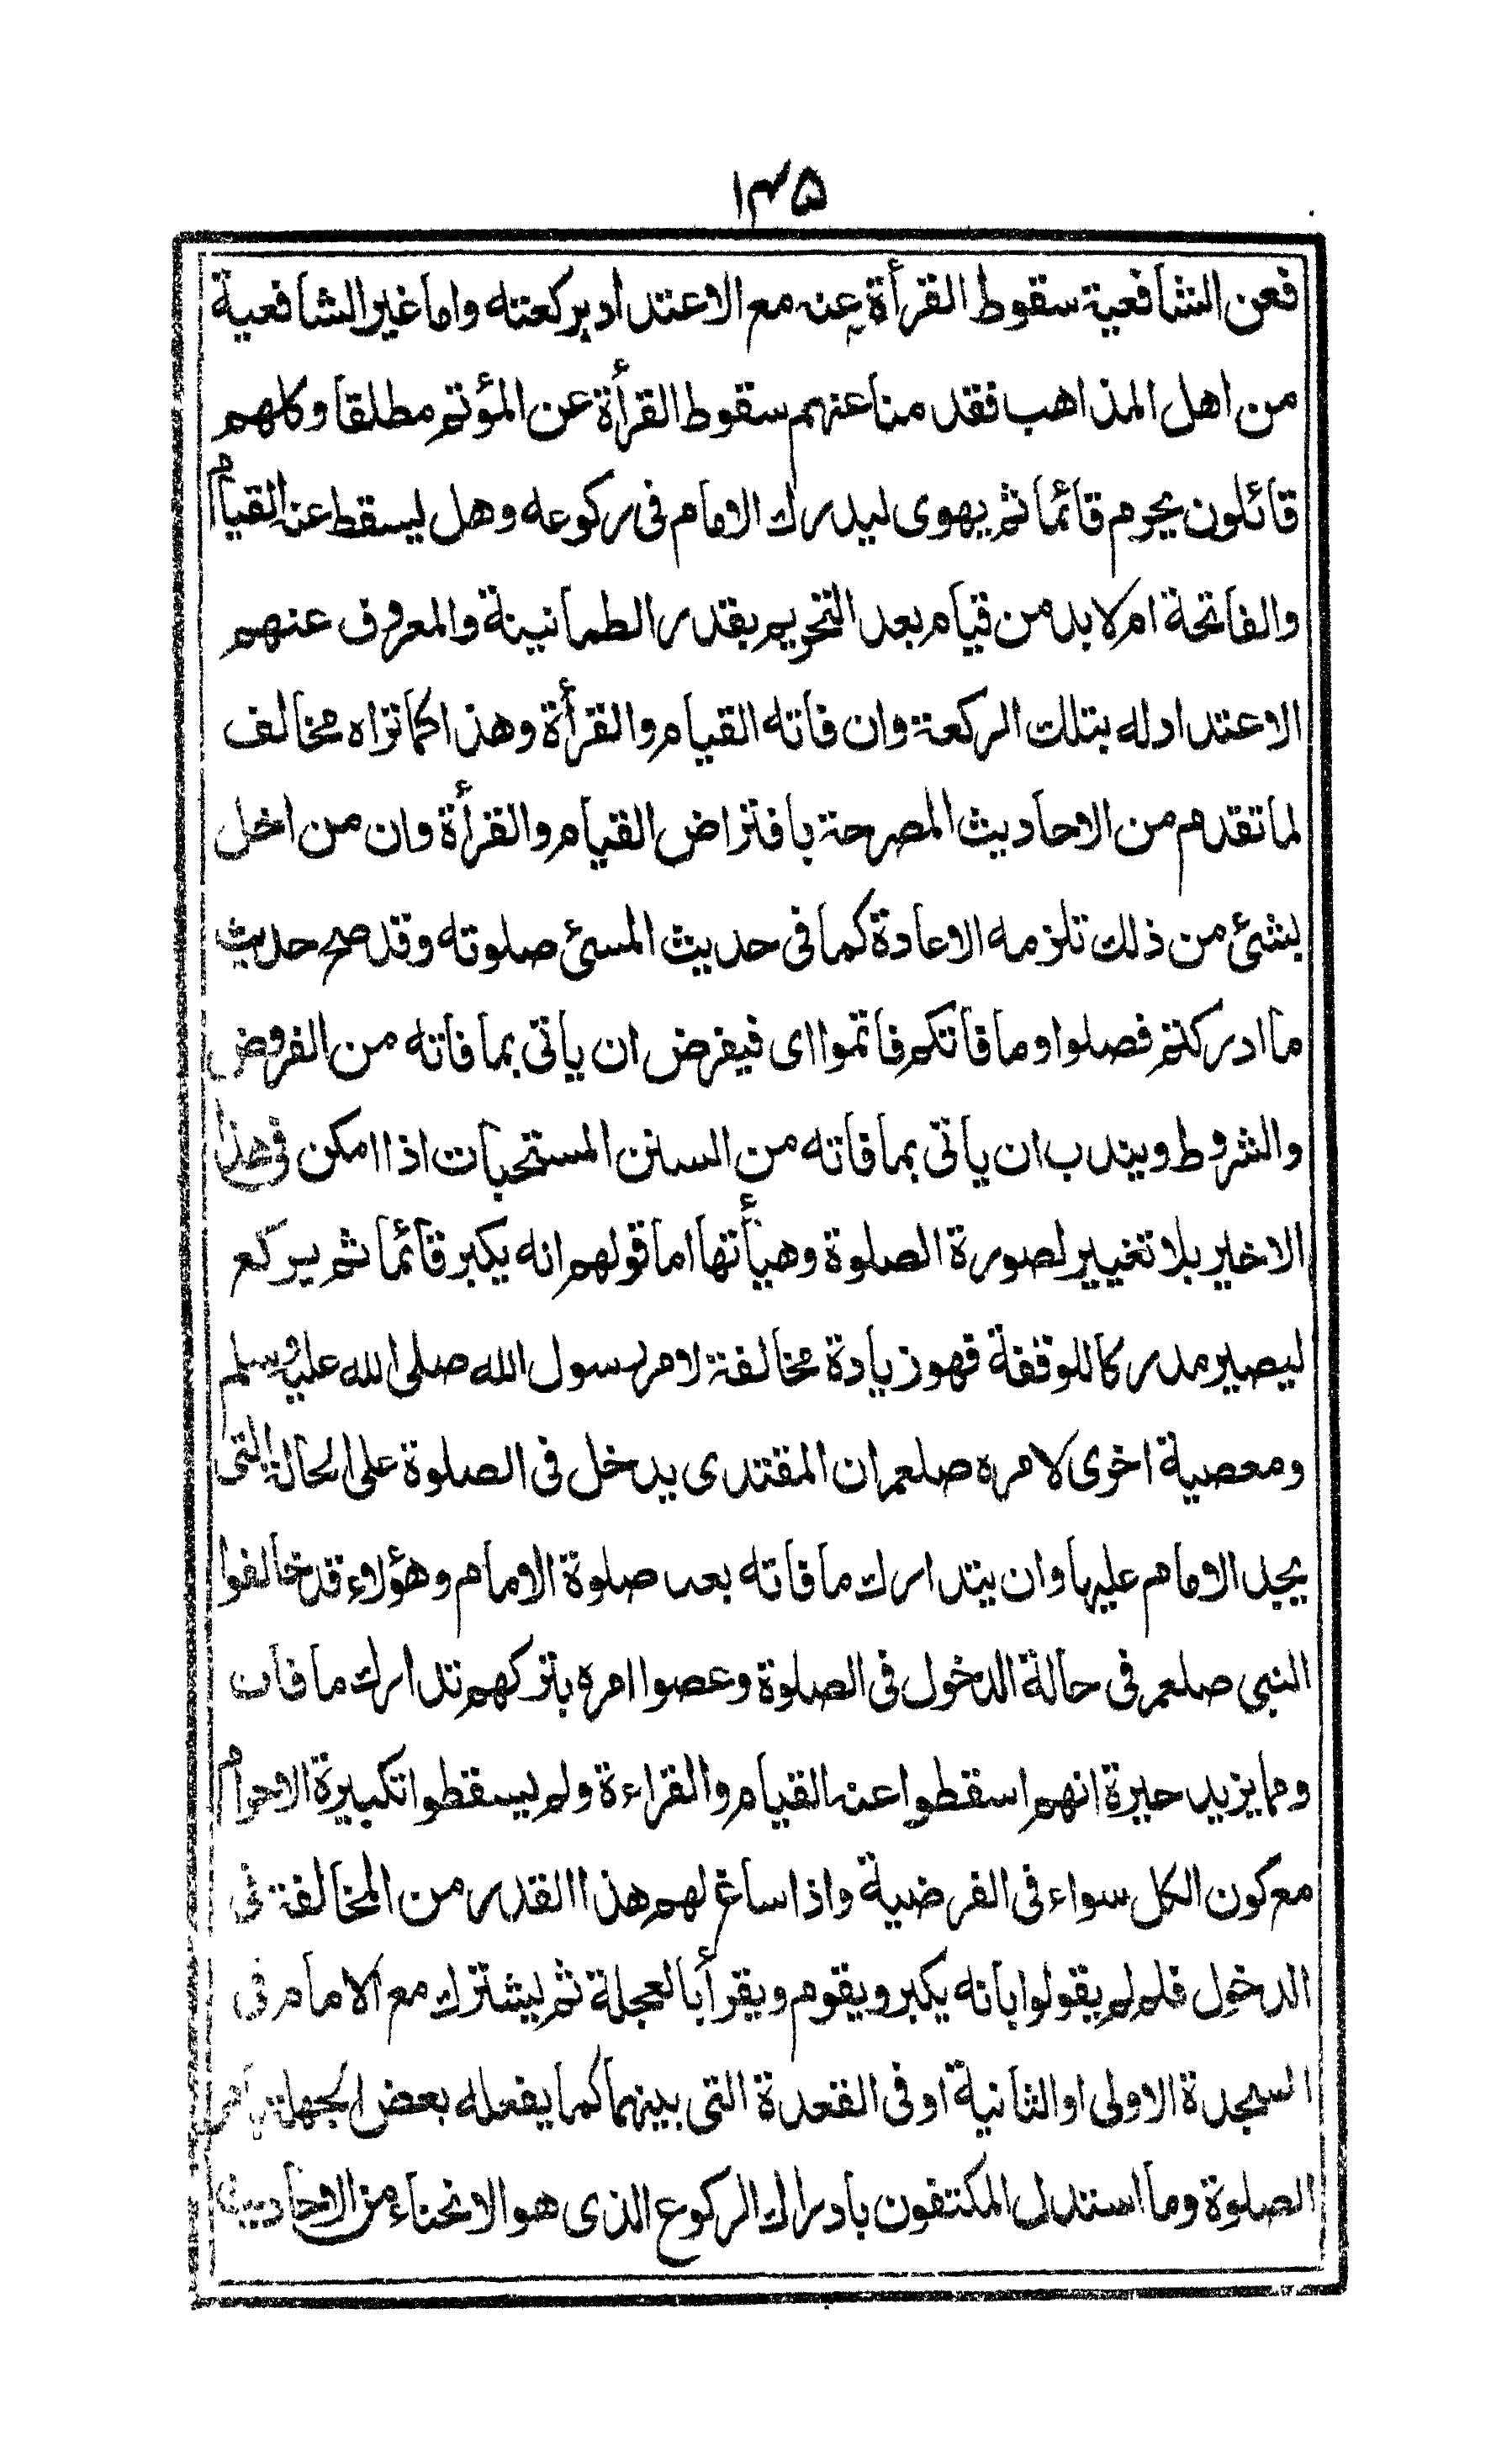 ۱۳۵
فعن الشافعية سقوط القرأة عنه مع الاعتداد بركعته واما غير الشافعية
من اهل المذاهب فقد منا عنهم سقوط القرأة عن المؤتم مطلقا وكلهم
قائلون يحرم قائما ثم يهوى ليدرك الامام فى ركوعه وهل يسقط عنه القيام
والفاتحة ام لا بد من قيام بعد التحريم بقدر الطمانينة والمعروف عنهم
الاعتداد له بتلك الركعة وان فاته القيام والقرأة وهذا كما تراه مخالف
لما تقدم من الاحاديث المصرحة بافتراض القيام والقرأة وان من اخل
بشئ من ذلك تلزمه الاعادة كما فى حديث المسئ صلوته وقد صح حديث
ما ادركتم فصلوا وما فاتكم فاتموا اى فيفرض ان ياتى بما فاته من الفروض
والشروط ويندب ان ياتى بما فاته من السنن المستحبات اذا امكن فى هذا
الاخير بلا تغيير لصورة الصلوة وهيأتها اما قولهم انه يكبر قائما ثم يركع
ليصير مدركا للوقفة فهو زيادة مخالفة لامر رسول الله صلى الله عليه وسلم
ومعصية اخرى لامره صلعم ان المقتدى يدخل فى الصلوة على الحالة التى
يجد الامام عليها وان يتدارك ما فاته بعد صلوة الامام وهؤلاء قد خالفوا
النبى صلعم فى حالة الدخول فى الصلوة وعصوا امره بتركهم تدارك ما فات
ومما يزيد حيرة انهم اسقطوا عنه القيام والقراءة ولم يسقطوا تكبيرة الاحرام
مع كون الكل سواء فى الفرضية واذا ساغ لهم هذا القدر من المخالفة فى
الدخول فلم لم يقولوا بانه يكبر ويقوم ويقرأ بالعجلة ثم ليشترك مع الامام فى
السجدة الاولى او الثانية او فى القعدة التى بينهما كما يفعله بعض الجهلة
الصلوة وما استدل المكتفون بادراك الركوع الذى هو الانحناء من الاحاديث